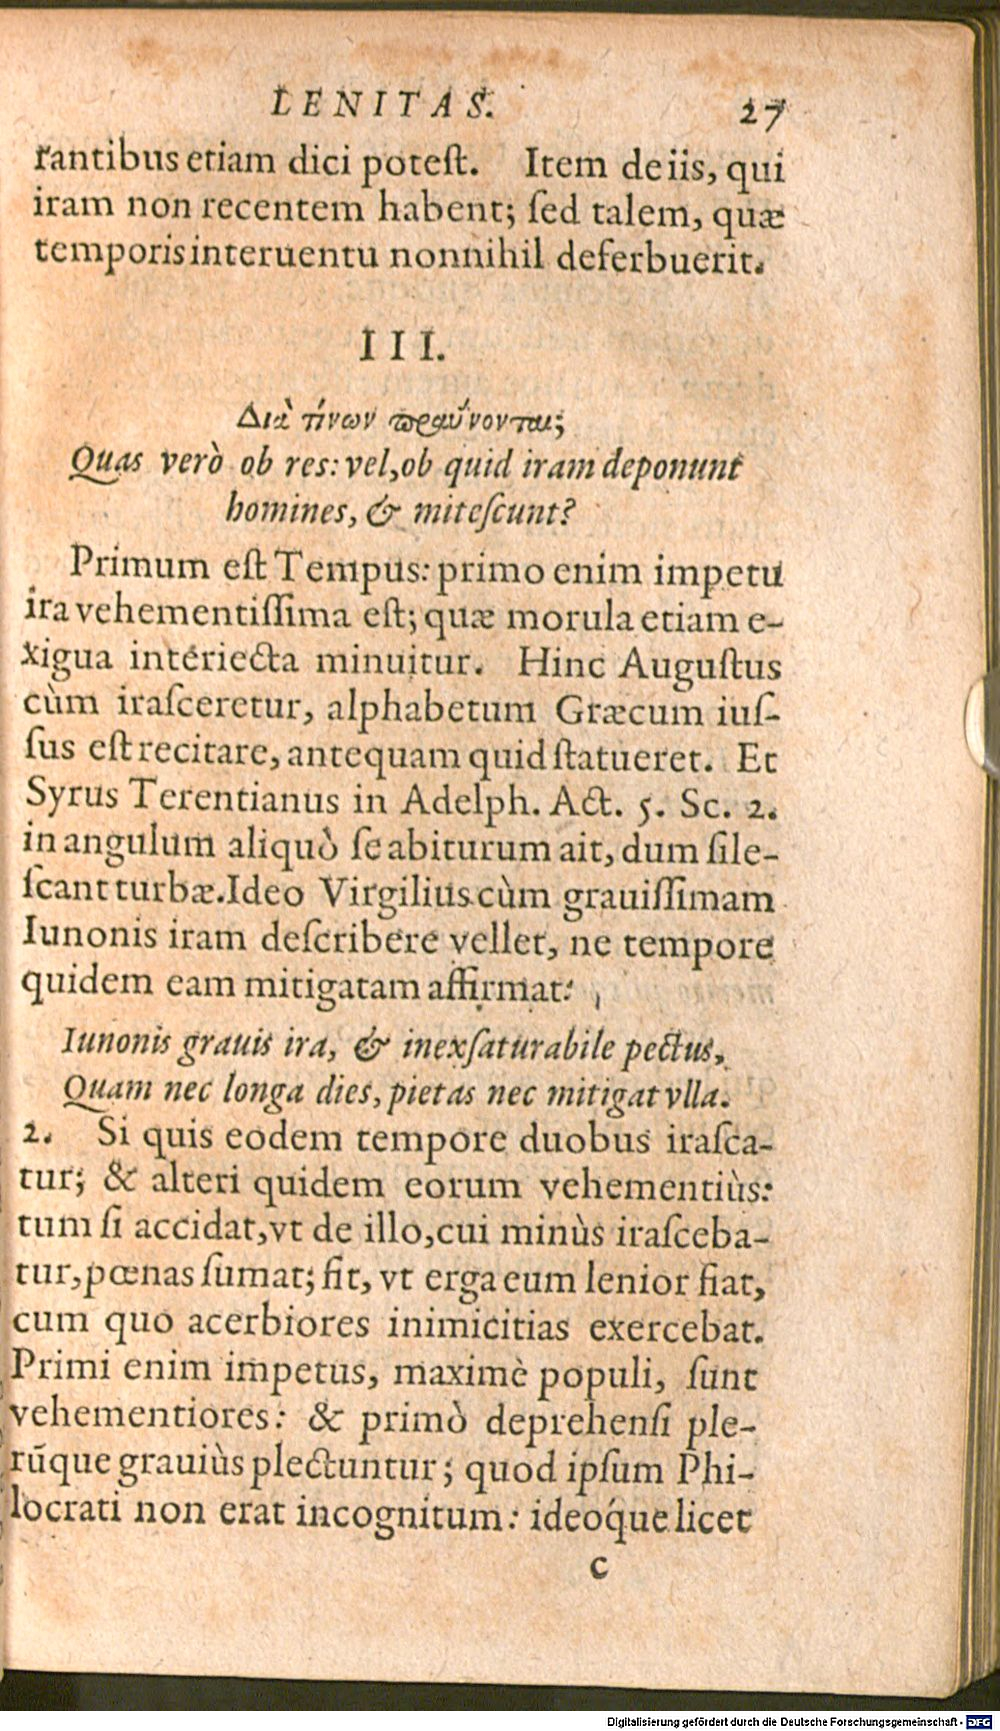 LENITAS. 27
rantibus etiam dici poteſt. Item de iis, qui
iram non recentem habent; ſed talem, quæ
temporis interuentu nonnihil deferbuerit.
III.
Διὰ τίνων πραΰνονται;
Quas verò ob res: vel, ob quid iram deponunt
homines, & miteſcunt?
Primum eſt Tempus: primo enim impetu
ira vehementiſſima eſt; quæ morula etiam e-
xigua interiecta minuitur. Hinc Auguſtus
cùm iraſceretur, alphabetum Græcum iuſ-
ſus eſt recitare, antequam quid ſtatueret. Et
Syrus Terentianus in Adelph. Act. 5. Sc. 2.
in angulum aliquò ſe abiturum ait, dum ſile-
ſcant turbæ. Ideo Virgilius cùm grauiſſimam
Iunonis iram deſcribere vellet, ne tempore
quidem eam mitigatam affirmat:
Iunonis grauis ira, & inexſaturabile pectus,
Quam nec longa dies, pietas nec mitigat vlla.
2. Si quis eodem tempore duobus iraſca-
tur; & alteri quidem eorum vehementiùs:
tum ſi accidat, vt de illo, cui minùs iraſceba-
tur, pœnas ſumat; fit, vt erga eum lenior fiat,
cum quo acerbiores inimicitias exercebat.
Primi enim impetus, maximè populi, ſunt
vehementiores: & primò deprehenſi ple-
rūque grauiùs plectuntur; quod ipſum Phi-
locrati non erat incognitum: ideóque licet
c
Digitalisierung gefördert durch die Deutsche Forschungsgemeinschaft - DFG